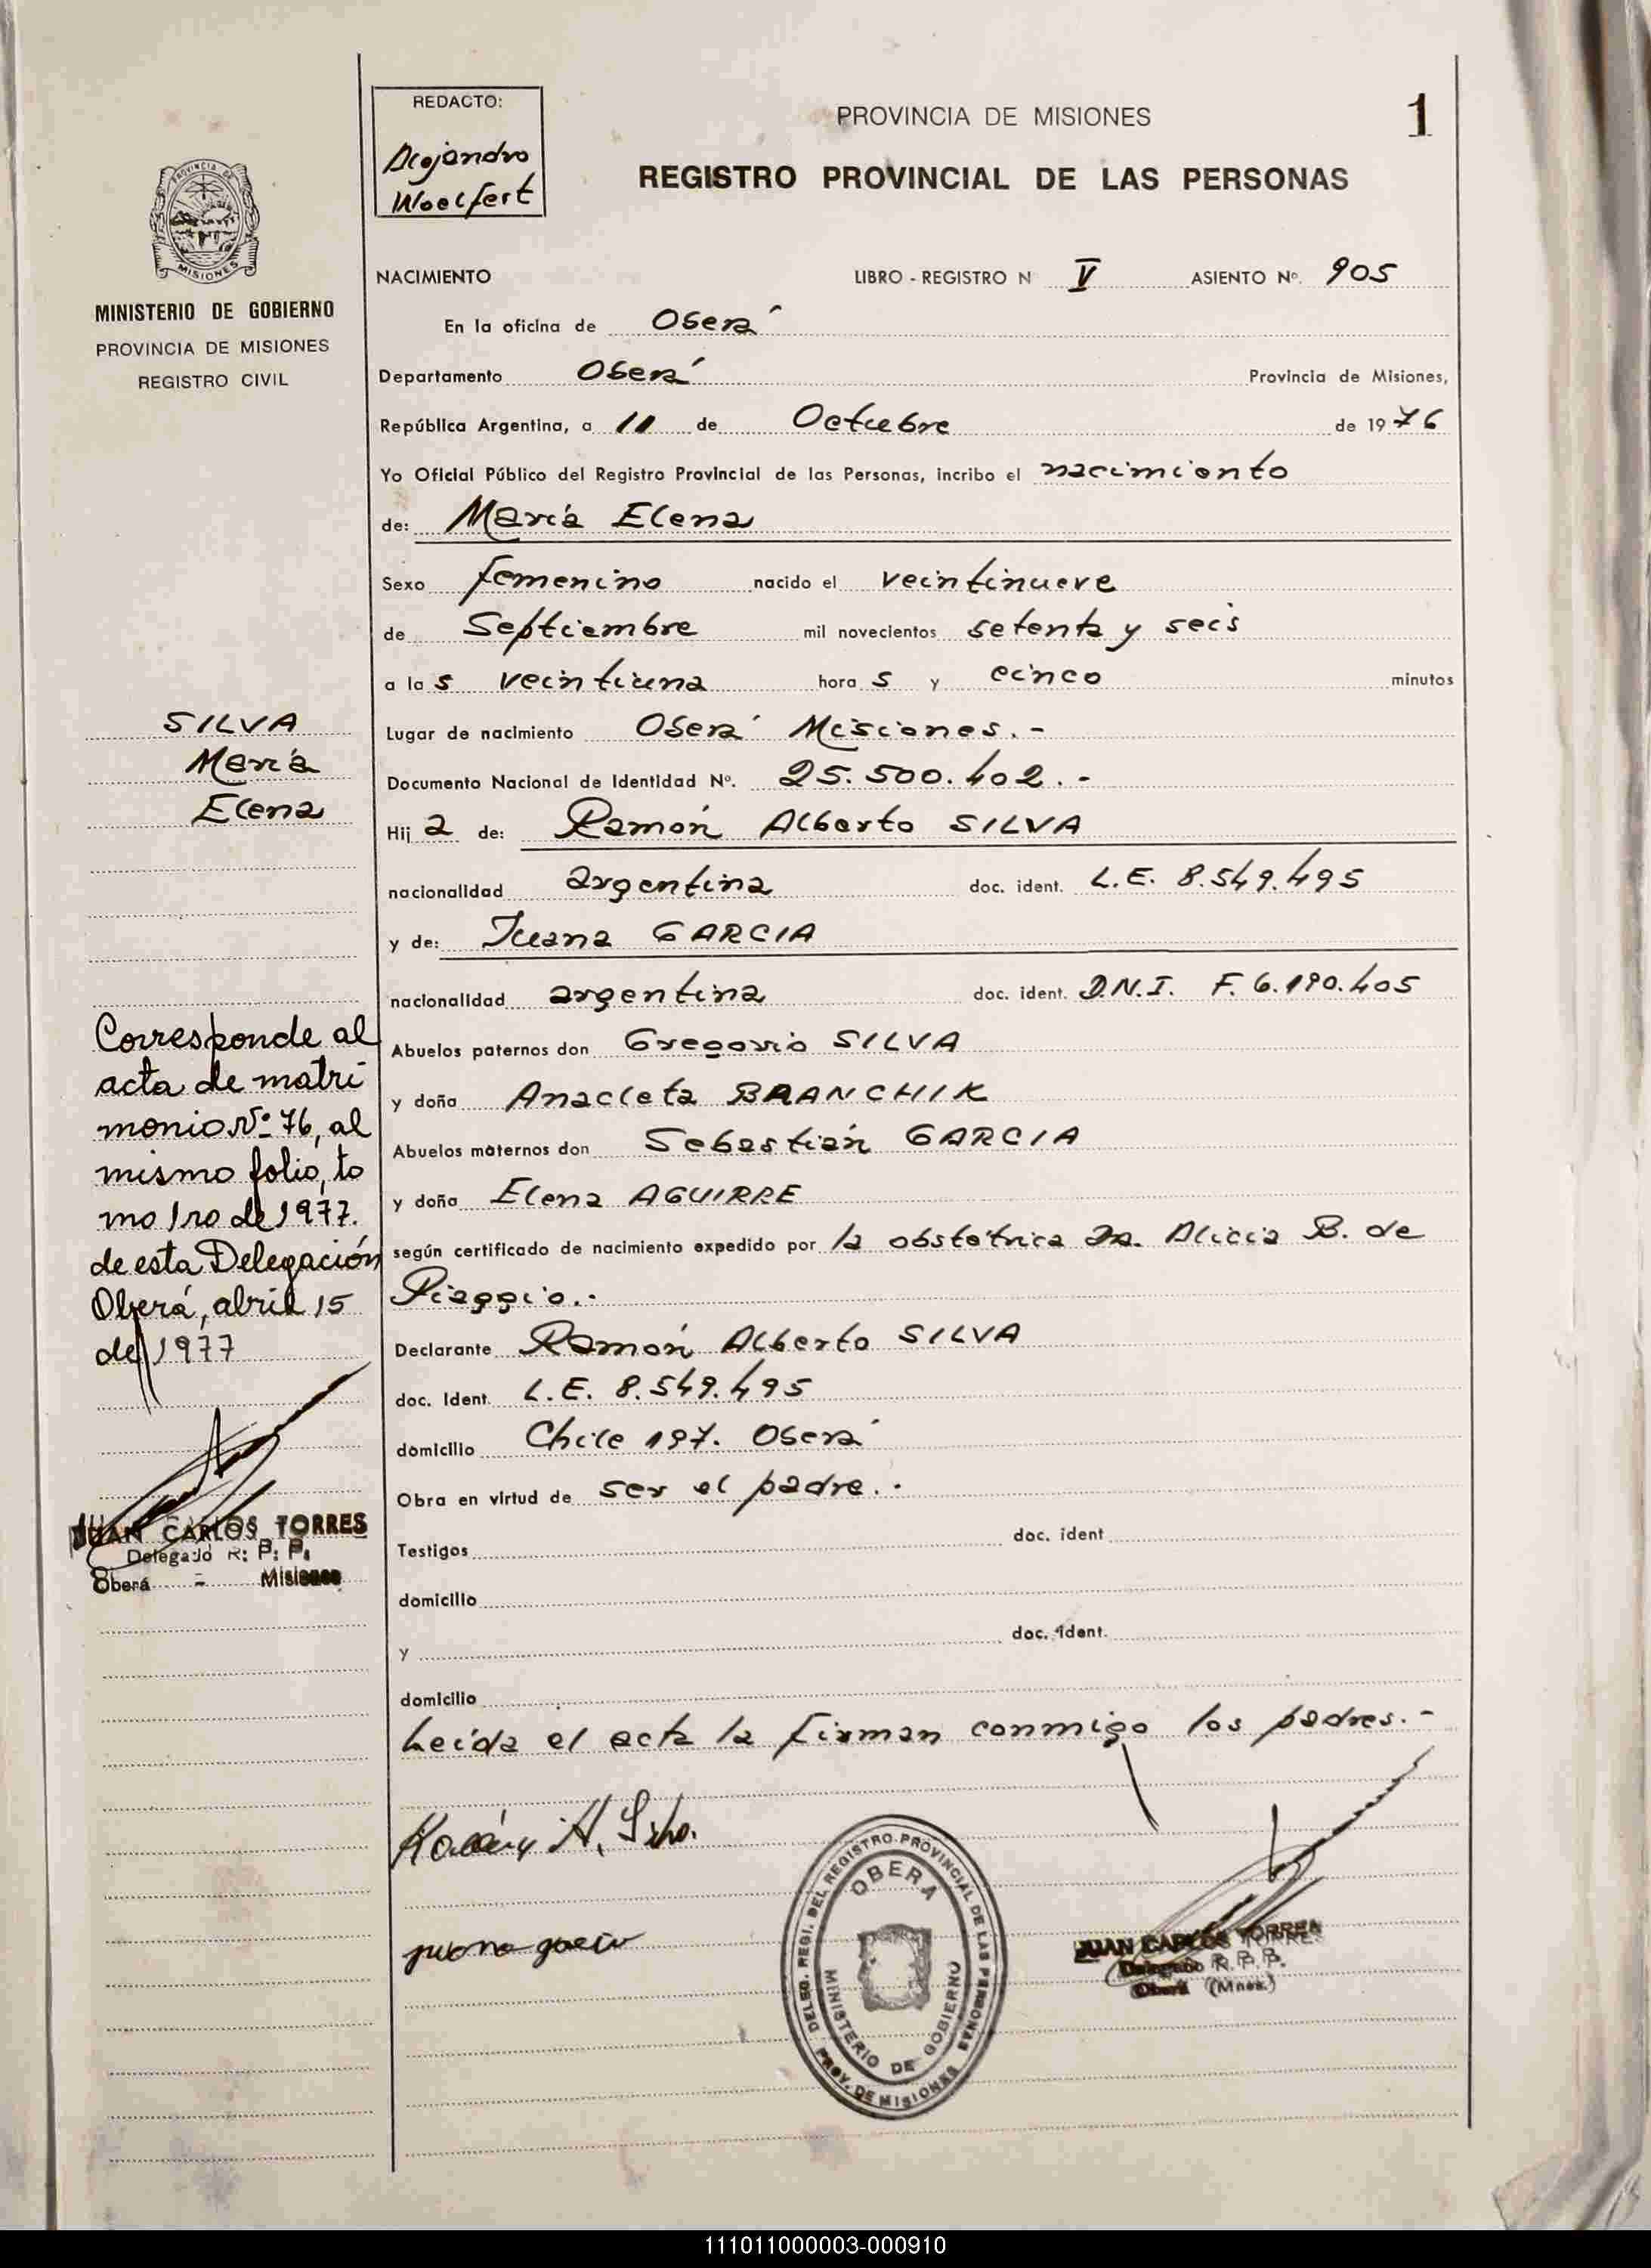 REDACTO:
Alejandro
Woelfert
PROVINCIA DE MISIONES
1
REGISTRO PROVINCIAL DE LAS PERSONAS
PROVINCIA DE
MISIONES
MINISTERIO DE GOBIERNO
PROVINCIA DE MISIONES
REGISTRO CIVIL
NACIMIENTO LIBRO - REGISTRO N V ASIENTO Nº. 905
En la oficina de Oberá
Departamento Oberá Provincia de Misiones,
República Argentina, a 11 de Octubre de 1976
Yo Oficial Público del Registro Provincial de las Personas, incribo el nacimiento
de: María Elena
Sexo femenino nacido el veintinueve
de Septiembre mil novecientos setenta y seis
a las veintiuna horas y cinco minutos
Lugar de nacimiento Oberá Misiones.-
Documento Nacional de Identidad Nº. 25.500.402.-
Hija de: Ramón Alberto SILVA
nacionalidad argentina doc. ident. L.E. 8.549.495
y de: Juana GARCIA
nacionalidad argentina doc. ident. D.N.I. F. 6.190.405
Abuelos paternos don Gregorio SILVA
y doña Anacleta BRANCHIK
Abuelos maternos don Sebastián GARCIA
y doña Elena AGUIRRE
según certificado de nacimiento expedido por la obstétrica Da. Alicia B. de
Piaggio.-
Declarante Ramón Alberto SILVA
doc. Ident. L.E. 8.549.495
domicilio Chile 197. Oberá
Obra en virtud de ser el padre.-
Testigos doc. ident
domicilio
y doc. ident.
domicilio
Leída el acta la firman conmigo los padres.-
SILVA
María
Elena
Corresponde al
acta de matri
monio Nº 76, al
mismo folio, to
mo 1ro de 1977.
de esta Delegación
Oberá, abril 15
de 1977
JUAN CARLOS TORRES
Delegado R. P. P.
Oberá - Misiones
Ramón A. Silva.
juana garcia
DELEG. REGI. DEL REGISTRO PROVINCIAL DE LAS PERSONAS
OBERA
MINISTERIO DE GOBIERNO
PROV. DE MISIONES
JUAN CARLOS TORRES
Delegado R. P. P.
Oberá (Mnes.)
111011000003-000910